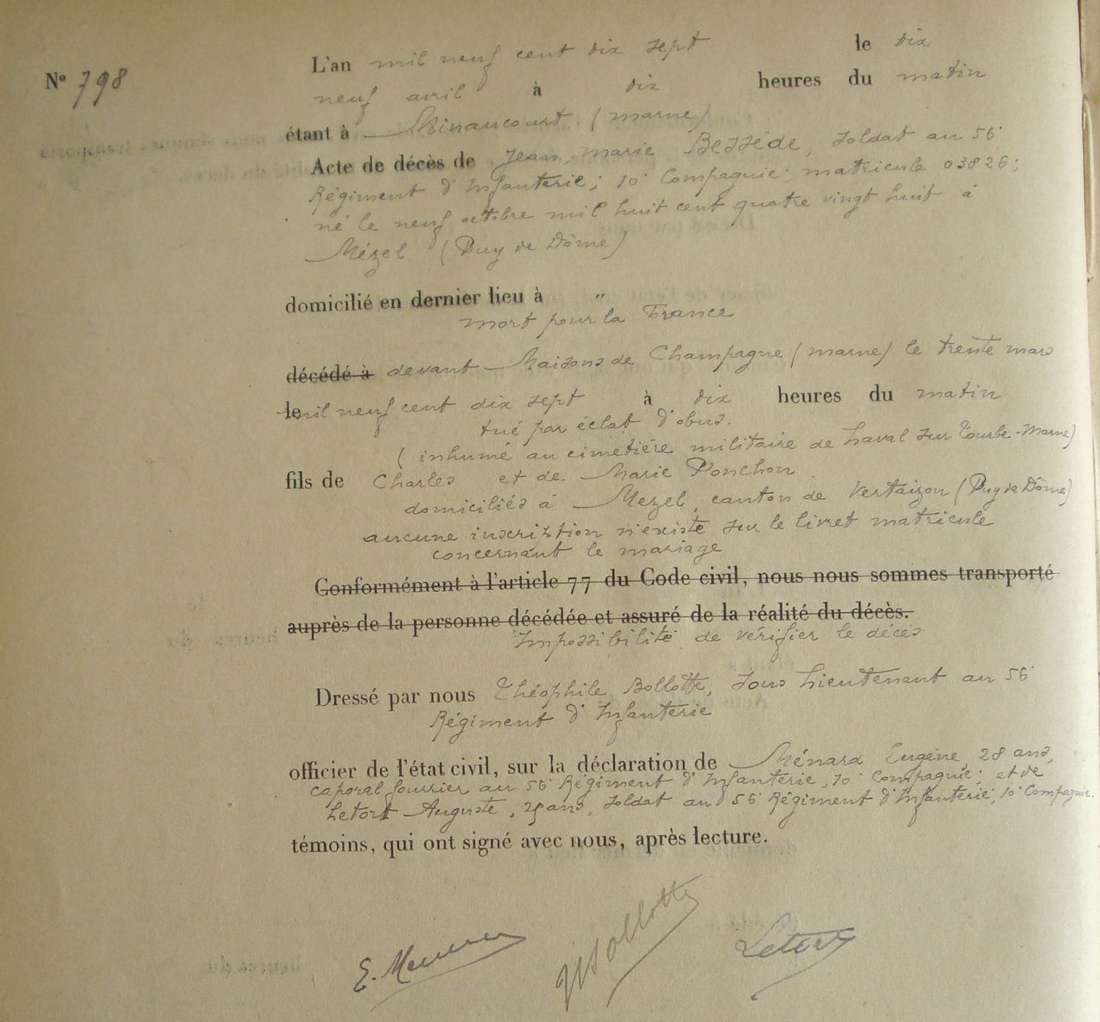 L'an mil neuf cent dix sept le dix
N° 798
neuf avril à dix heures du matin
étant à Minaucourt (Marne)
Acte de décès de Jean Marie Bessède, soldat au 56e
Régiment d'Infanterie; 10e Compagnie: matricule 03826;
né le neuf octobre mil huit cent quatre vingt huit à
Mézel (Puy de Dôme)
domicilié en dernier lieu à "
mort pour la France
décédé à devant Maisons de Champagne (Marne) le trente mars
le mil neuf cent dix sept à dix heures du matin
tué par éclat d'obus.
(inhumé au cimetière militaire de Laval sur Tourbe-Marne)
fils de Charles et de Marie Ponchon
domiciliés à Mezel, canton de Vertaizon (Puy de Dôme)
aucune inscription n'existe sur le livret matricule
concernant le mariage
Conformément à l'article 77 du Code civil, nous nous sommes transporté
auprès de la personne décédée et assuré de la réalité du décès.
Impossibilité de vérifier le décès
Dressé par nous Théophile Bollotte, Sous Lieutenant au 56e
Régiment d'Infanterie
officier de l'état civil, sur la déclaration de Ménard Eugène, 28 ans,
caporal fourrier au 56e Régiment d'Infanterie, 10e Compagnie; et de
Letort Auguste, ans, soldat au 56e Régiment d'Infanterie, 10e Compagnie.
témoins, qui ont signé avec nous, après lecture.
Bollotte
E. Letort